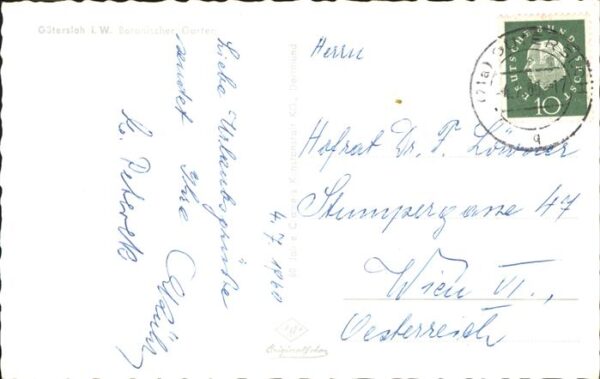 Gütersloh i. W. Botanischer Garten
Liebe Urlaubsgrüße
sendet Ihre
4.7.1960
Herrn
Hofrat Dr. F.
Stumpergasse 47
Wien VI.,
Oesterreich
DEUTSCHE BUNDESPOST
10
(21a)
Originalfoto